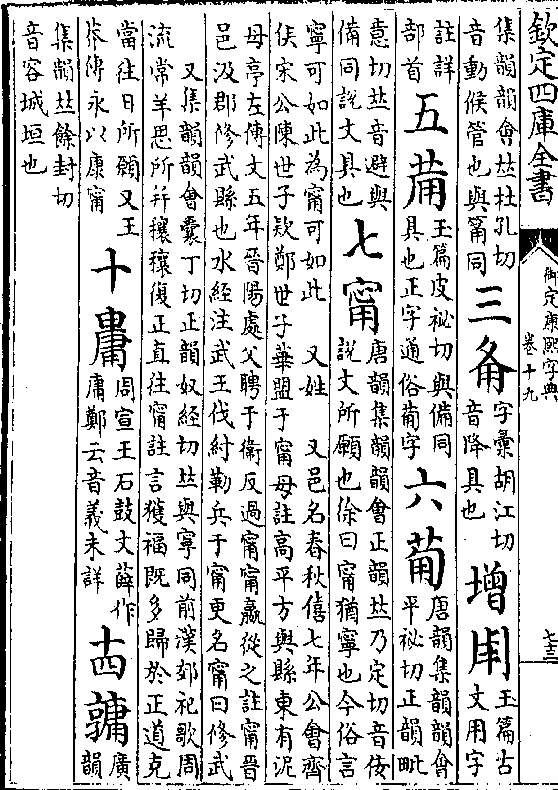 欽定四庫全書
御定康熙字典
卷十九
七三
集韻韻會𠀤杜孔切
音動候管也與筩同
三
字彙胡江切
音降具也
增𤰃
玉篇古
文用字
註詳
部首
五𤰈
玉篇皮祕切與備同
具也正字通俗葡字
六葡
唐韻集韻韻會
平祕切正韻毗
意切𠀤音避與
備同說文具也
七甯
唐韻集韻韻會正韻𠀤乃定切音佞
說文所願也徐曰甯猶寧也今俗言
寧可如此為甯可如此 又姓 又邑名春秋僖七年公會齊
侯宋公陳世子欵鄭世子華盟于甯母註高平方與縣東有泥
母亭左傳文五年晉陽處父聘于衛反過甯甯嬴從之註甯晉
邑汲郡修武縣也水經注武王伐紂勒兵于甯更名甯曰修武
又集韻韻會囊丁切正韻奴經切𠀤與寧同前漢郊祀歌周
流常羊思所并穰穰復正直往甯註言獲福既多歸於正道克
當往日所願 又王
莽傳永以康甯
十
周宣王石鼓文薛作
庸鄭云音義未詳
十四
廣
韻
集韻𠀤餘封切
音容城垣也